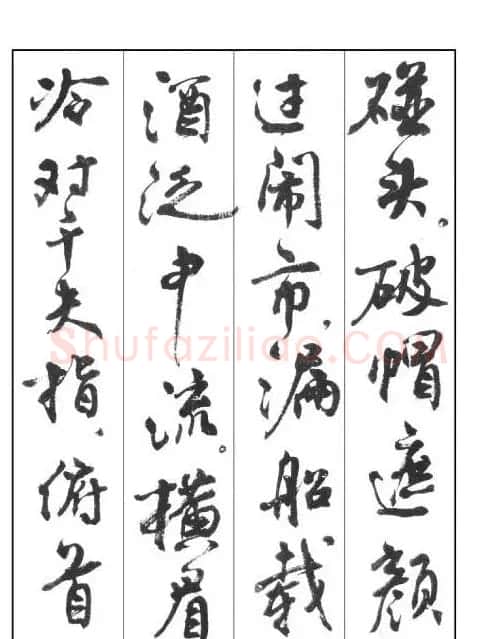 碰头。破帽遮颜
过闹市,漏船载
酒泛中流。横眉
冷对千夫指,俯首
Shufaziliao.COM